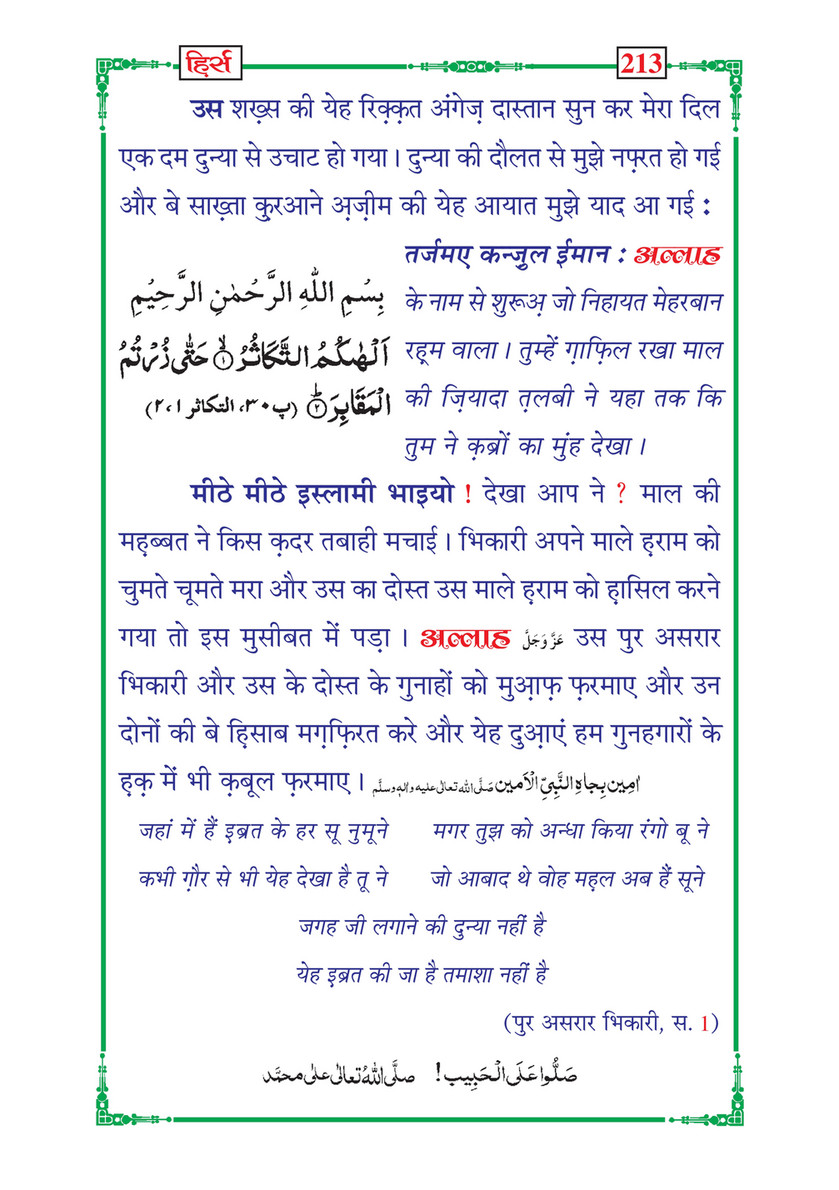 हिर्स
213
उस शख़्स की येह रिक़्क़त अंगेज़ दास्तान सुन कर मेरा दिल
एक दम दुन्या से उचाट हो गया। दुन्या की दौलत से मुझे नफ़्रत हो गई
और बे साख़्ता कु़रआने अ़ज़ीम की येह आयात मुझे याद आ गई :
بِسْمِ اللّٰهِ الرَّحْمٰنِ الرَّحِيْمِ
اَلْهٰىكُمُ التَّكَاثُرُۙ۝۱ حَتّٰى زُرْتُمُ
الْمَقَابِرَؕ۝۲ (پ۳۰، التکاثر ۲،۱)
तर्जमए कन्ज़ुल ईमान : अल्लाह
के नाम से शुरूअ़ जो निहायत मेहरबान
रह़्म वाला। तुम्हें ग़ाफ़िल रखा माल
की ज़ियादा त़लबी ने यहा तक कि
तुम ने क़ब्रों का मुंह देखा।
मीठे मीठे इस्लामी भाइयो ! देखा आप ने ? माल की
मह़ब्बत ने किस क़दर तबाही मचाई। भिकारी अपने माले ह़राम को
चुमते चूमते मरा और उस का दोस्त उस माले ह़राम को ह़ासिल करने
गया तो इस मुसीबत में पड़ा। अल्लाह عَزَّ وَجَلَّ उस पुर असरार
भिकारी और उस के दोस्त के गुनाहों को मुआ़फ़ फ़रमाए और उन
दोनों की बे ह़िसाब मग़्फ़िरत करे और येह दुआ़एं हम गुनहगारों के
ह़क़ में भी क़बूल फ़रमाए। اٰمِين بِجاهِ النَّبِيِّ الْاَمين صَلَّى الله تعالٰى عليه واٰلهٖ وسلَّم
जहां में हैं इ़ब्रत के हर सू नुमूने मगर तुझ को अन्धा किया रंगो बू ने
कभी ग़ौर से भी येह देखा है तू ने जो आबाद थे वोह मह़ल अब हैं सूने
जगह जी लगाने की दुन्या नहीं है
येह इ़ब्रत की जा है तमाशा नहीं है
(पुर असरार भिकारी, स. 1)
صَلُّوا عَلَى الْحَبِيب! صلَّى اللهُ تعالٰى على محمَّد